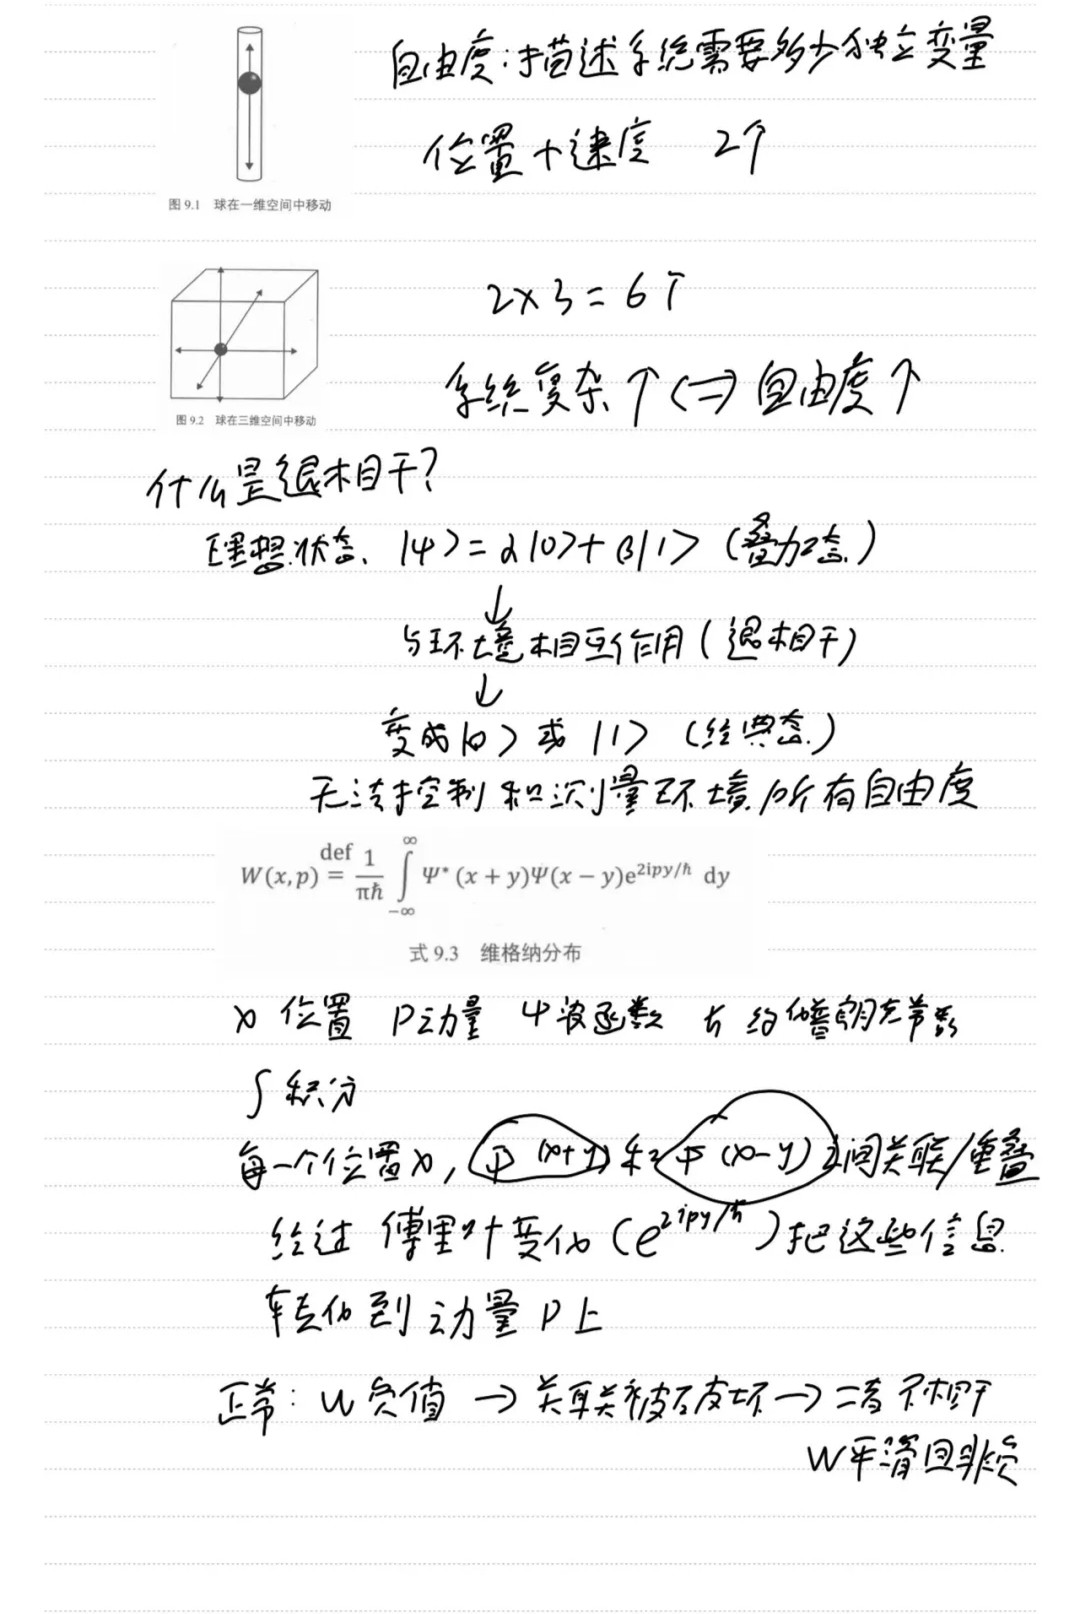 自由度:描述系统需要多少独立变量
位置+速度 2个
图 9.1 球在一维空间中移动
2×3=6个
系统复杂↑⟺自由度↑
图 9.2 球在三维空间中移动
什么是退相干?
理想状态、|ψ>=α|0>+β|1> (叠加态)
↓
与环境相互作用(退相干)
↓
变成|0>或|1> (经典态)
无法控制和测量环境所有自由度
W(x,p) def= 1/πħ ∫_{-∞}^{∞} Ψ*(x+y)Ψ(x−y)e^{2ipy/ħ} dy
式 9.3 维格纳分布
x 位置 P动量 ψ波函数 ħ 约化普朗克常数
∫ 积分
每一个位置x,Ψ(x+y)和Ψ(x-y)之间关联/重叠
经过 傅里叶变化(e^{2ipy/ħ})把这些信息
转化到动量P上
正常:W负值→关联被破坏→二者不相干
W平滑且非负